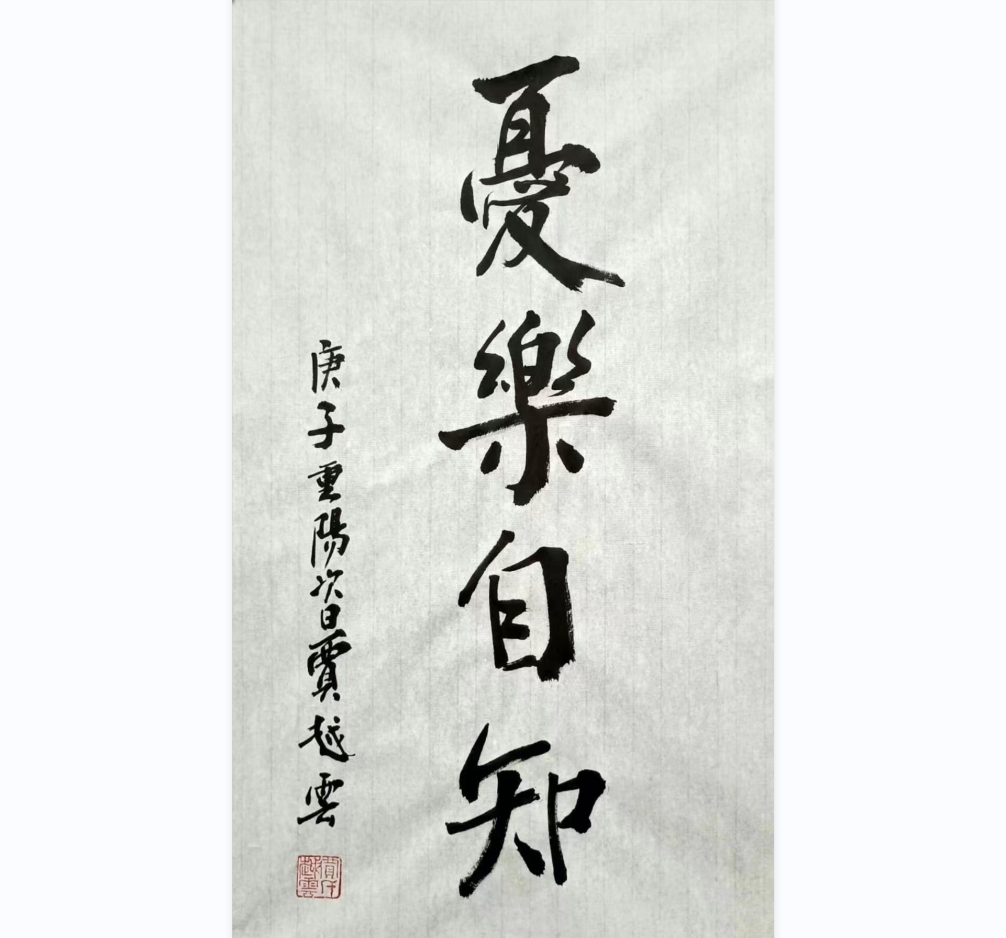 憂樂自知
庚子重陽次日賈越雲